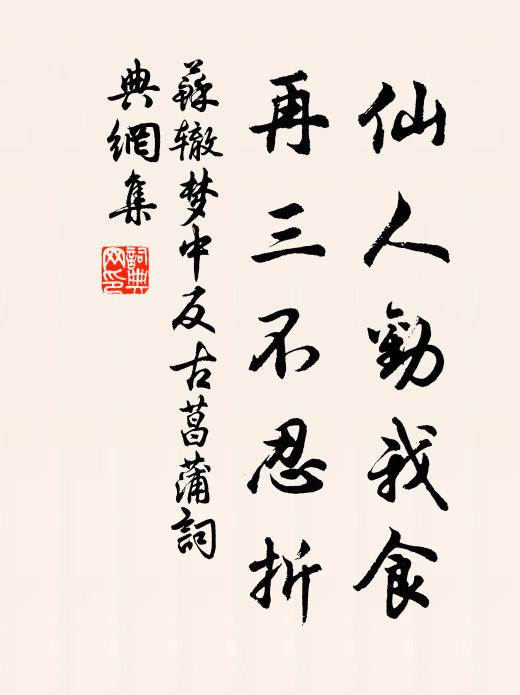 仙人勸我食
再三不忍折
蘇辙梦中反古菖蒲詞
典網集
詞典
网印